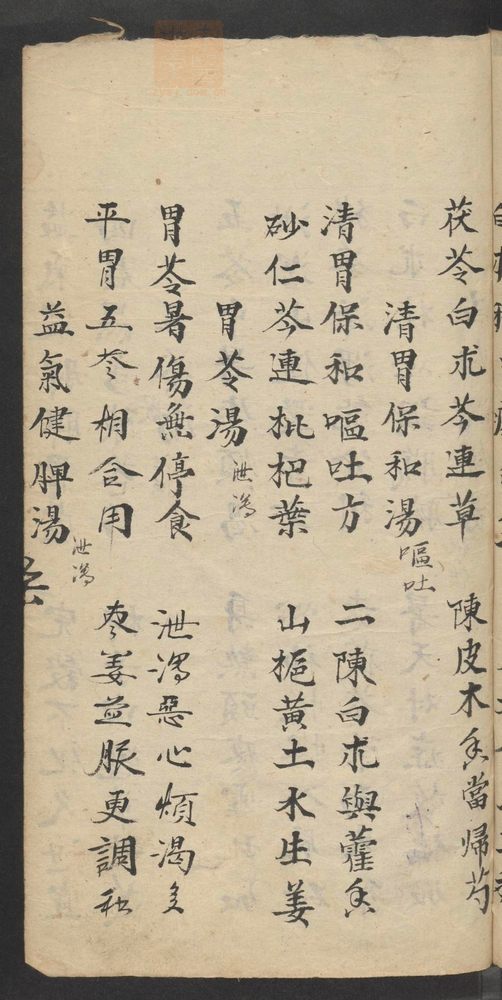 茯苓白朮芩連草　陳皮木香當歸芍
清胃保和湯　嘔吐
清胃保和嘔吐方　二陳白朮與藿香
砂仁芩連枇把葉　山梔黃土水生姜
胃苓湯　泄瀉
胃苓暑傷無停食　泄瀉惡心煩渴多
平胃五苓相合用　枣姜並服更調和
益氣健脾湯　泄瀉